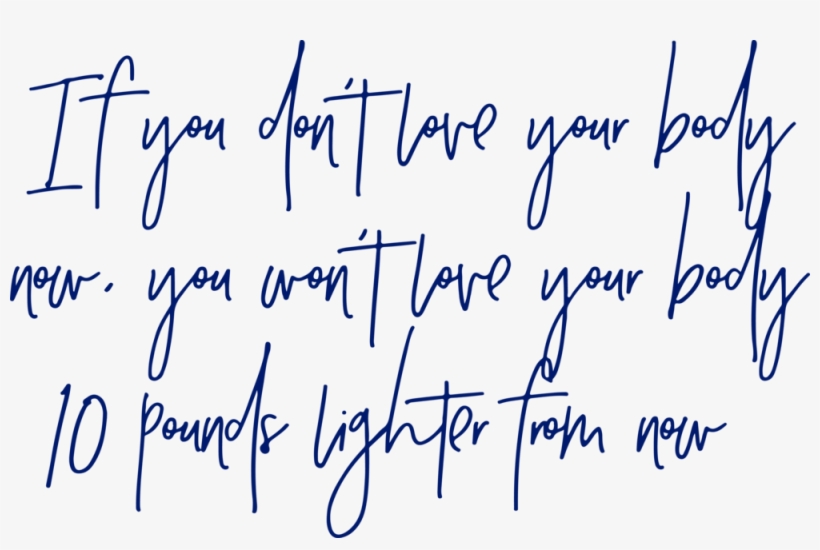 If you don't love your body
now, you won't love your body
10 pounds lighter from now